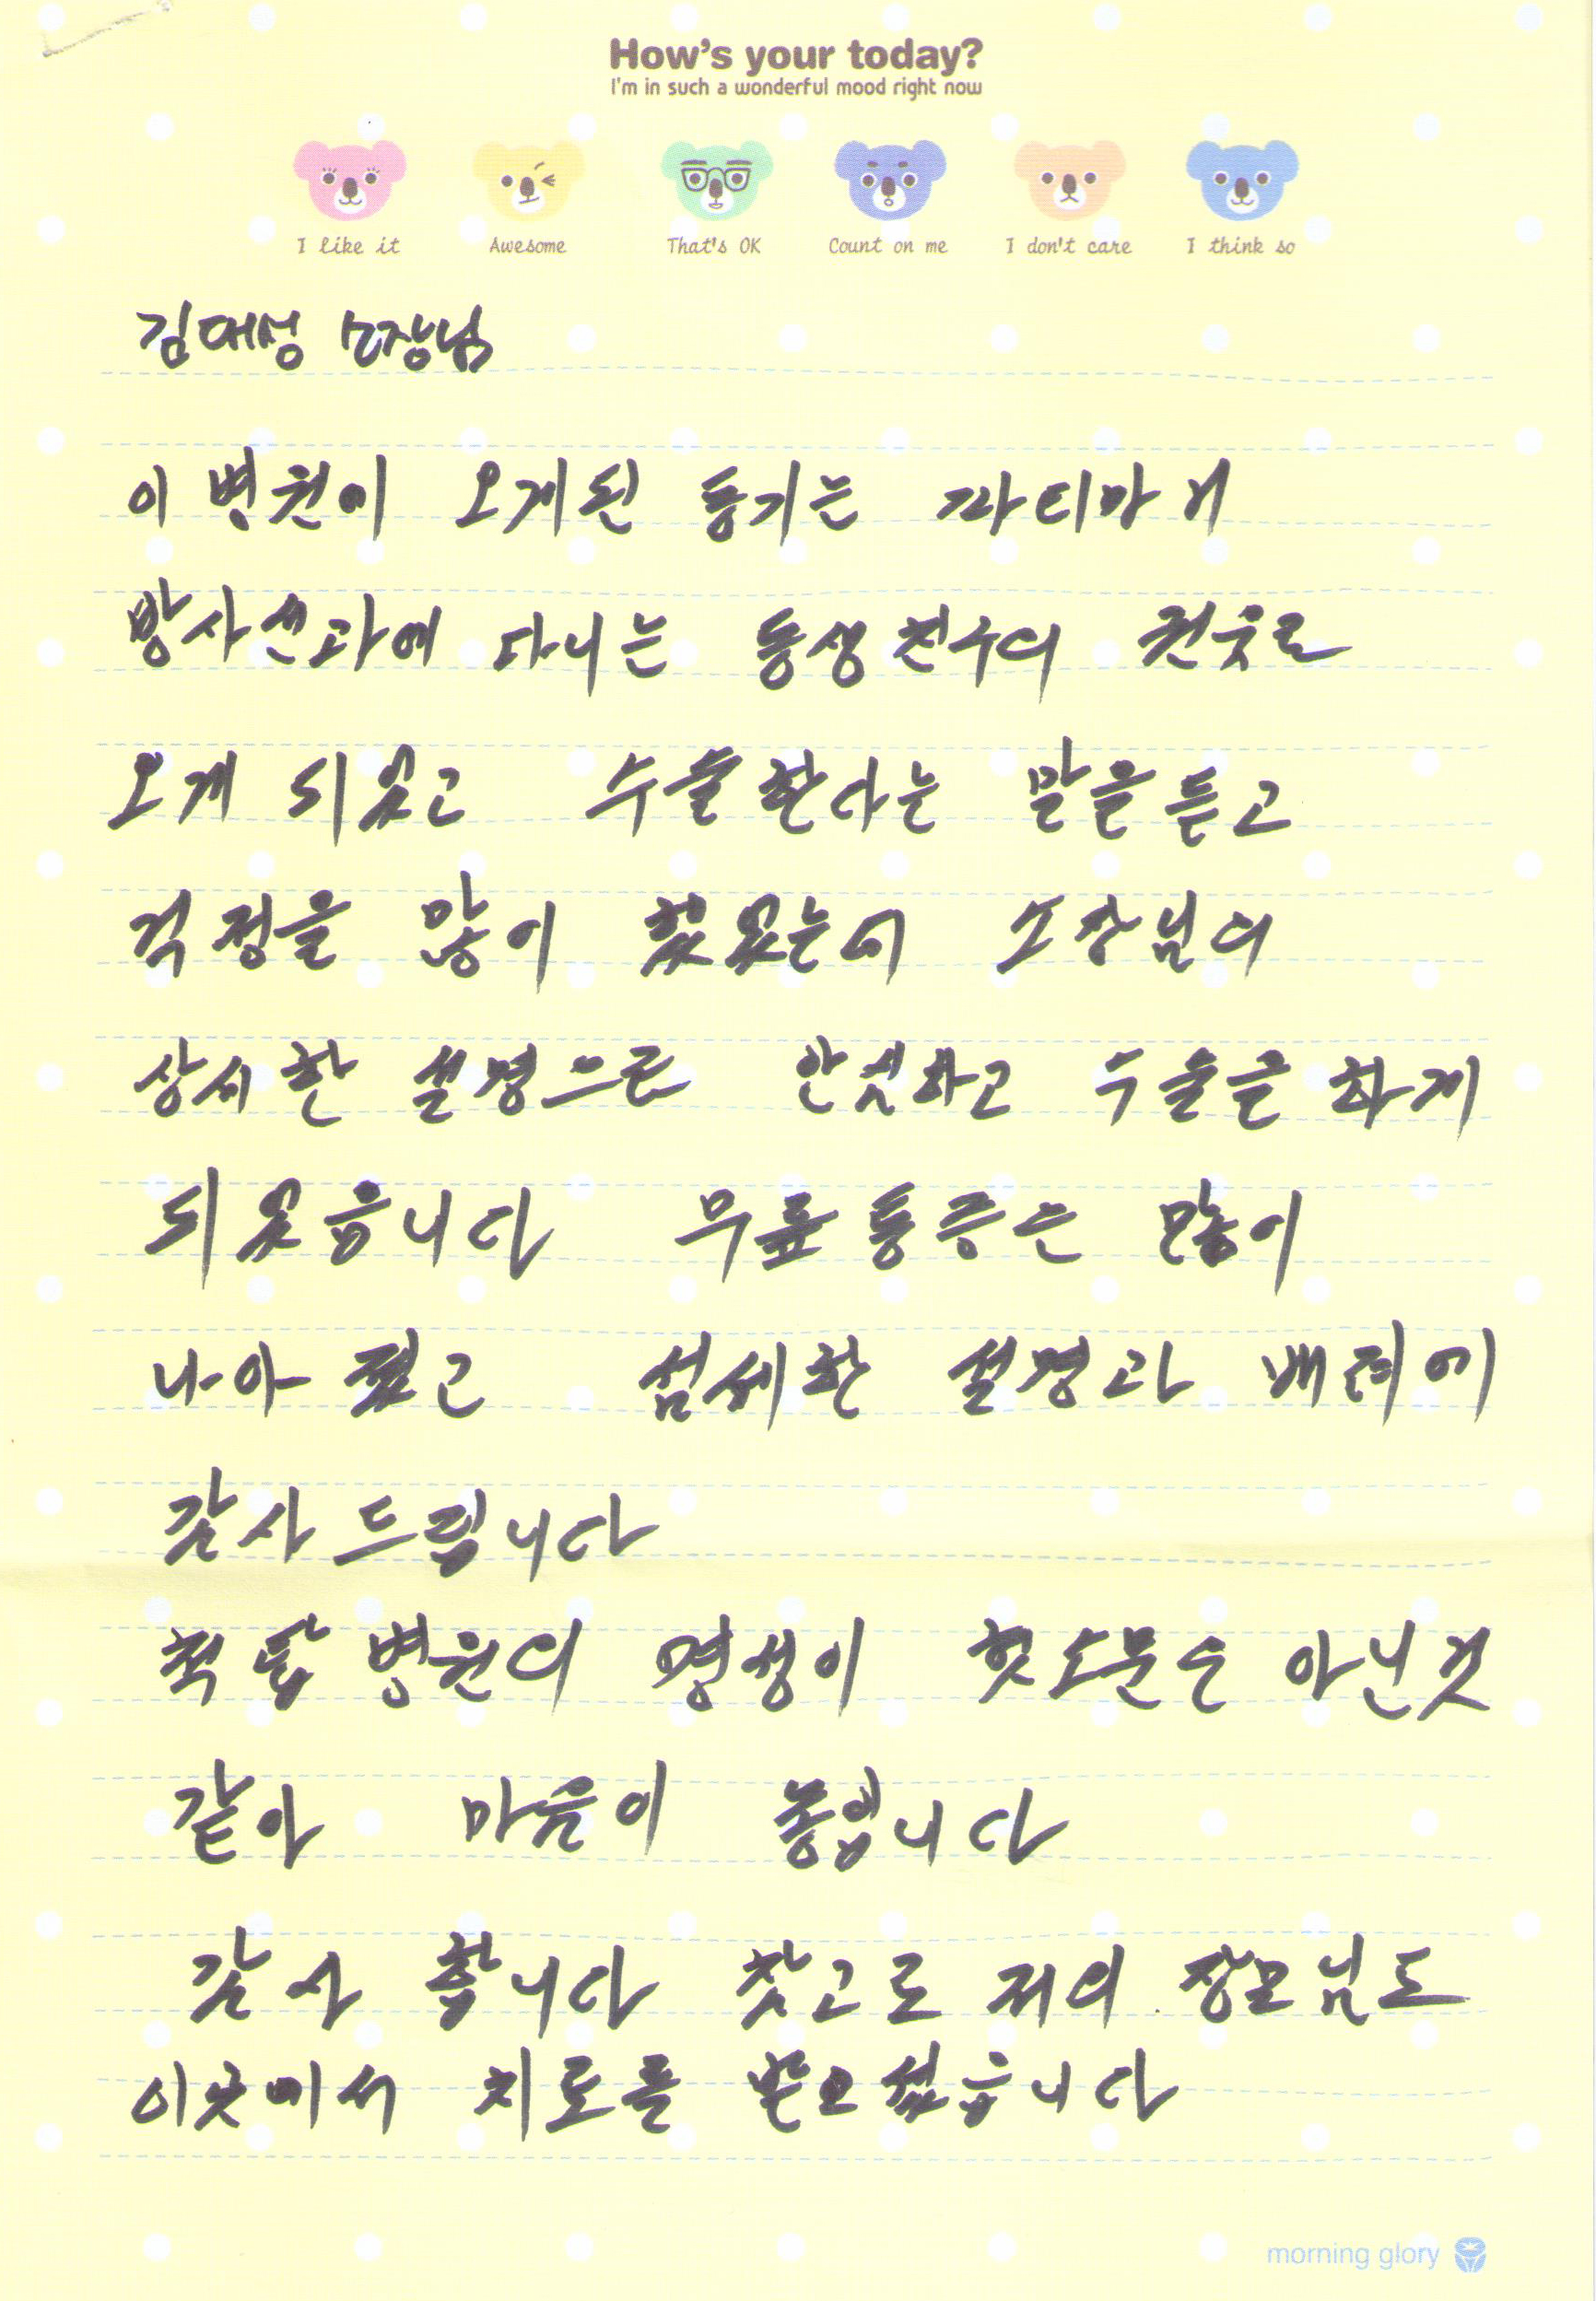 How's your today?
I'm in such a wonderful mood right now
I like it Awesome That's OK Count on me I don't care I think so
김대성 소장님
이 병원이 오게된 동기는 파티마
방사선과에 다니는 동생친구의 권웃로
오게 되옸고 수술한다는 말을듣고
걱정을 많이 했옸는데 소장님의
상세한 설명으로 안심하고 수술을하게
되옸읍니다 무릎통증은 많이
나아 졌고 섬세한 설명과 배려에
감사드립니다
척탑병원의 명성이 헛소문은 아닌것
같아 마음이 놓입니다
감사 합니다 참고로 저의 장모님도
이곳에서 치료를 받으셨읍니다
morning glory